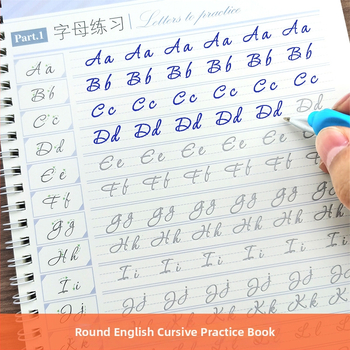 Part.1 字母练习 Letters to practice
Aa Aa Aa Aa Aa Aa Aa
Bb Bb Bb Bb Bb Bb Bb
Cc Cc Cc Cc Cc Cc Cc
Dd Dd Dd Dd Dd Dd Dd
Ee Ee Ee Ee Ee Ee
Ff Ff Ff Ff Ff Ff
Gg Gg Gg Gg Gg Gg Gg
Hh Hh Hh Hh Hh Hh Hh
Ii Ii Ii Ii Ii Ii Ii
Jj Jj Jj Jj Jj Jj Jj
Kk Kk Kk Kk Kk
Round English Cursive Practice Book